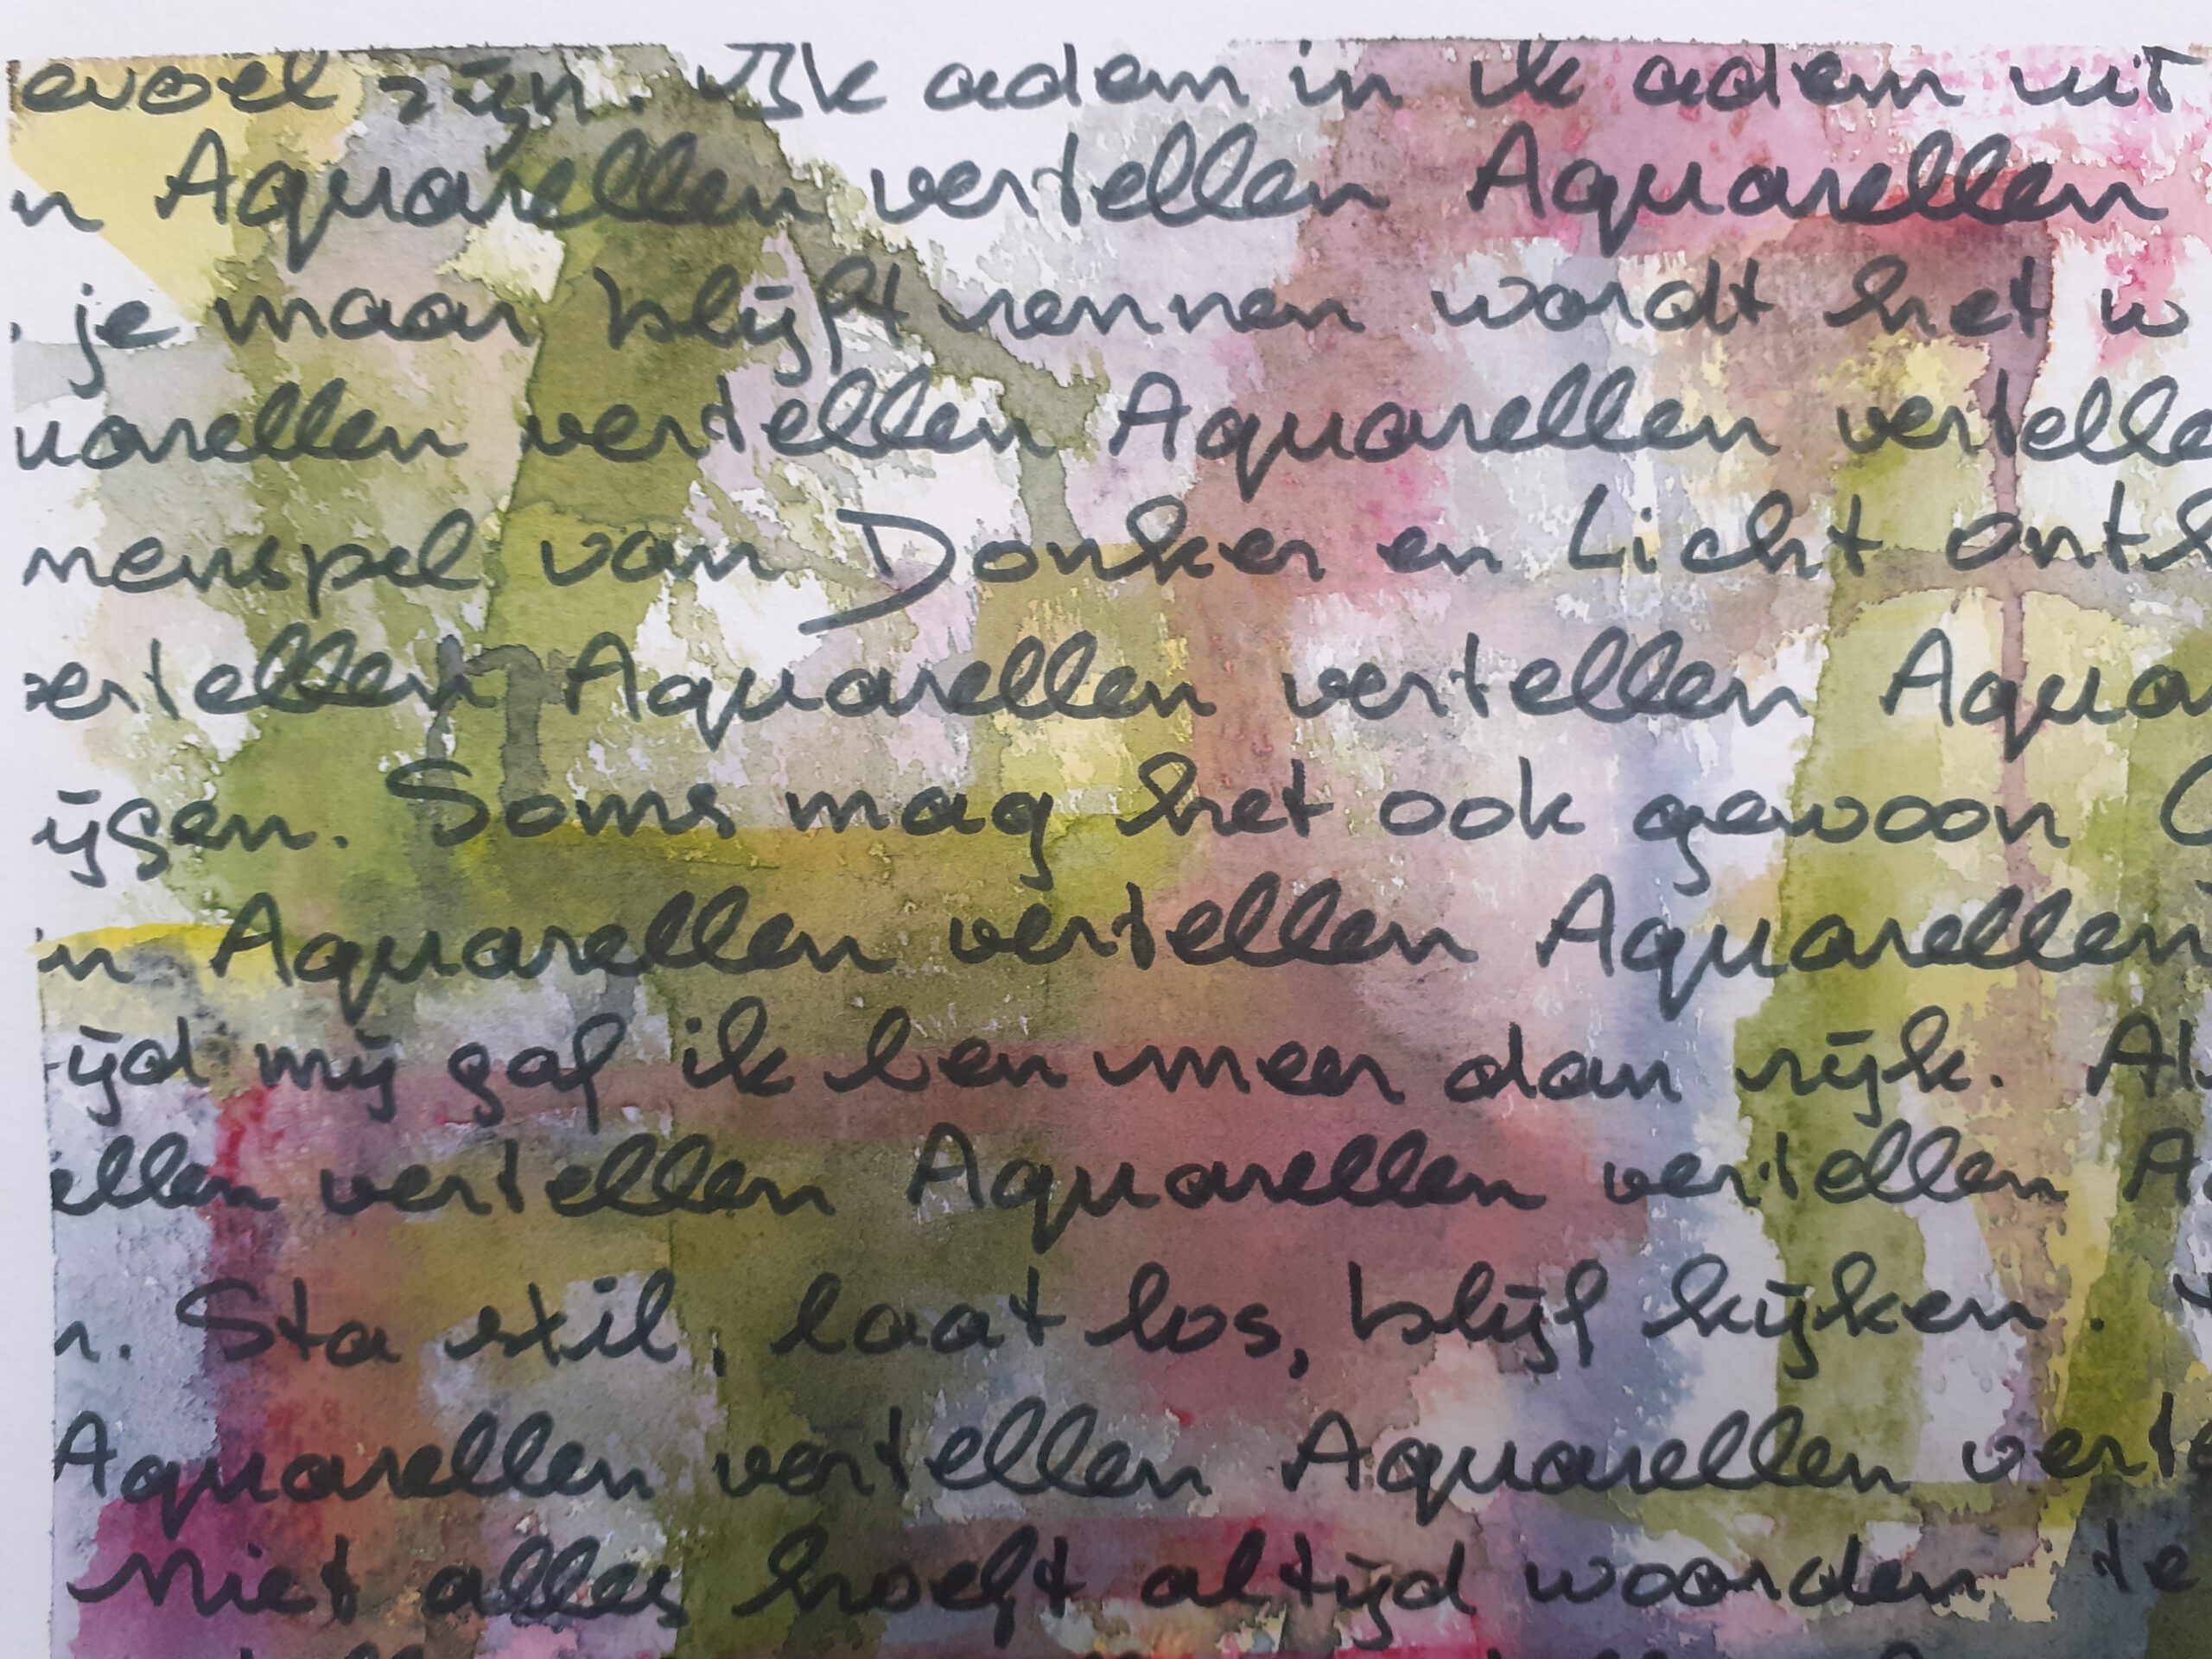 evoel zijn. Ik adem in ik adem uit
n Aquarellen vertellen Aquarellen
je maar blijft rennen wordt het w
uarellen vertellen Aquarellen vertelle
menspel van Donker en Licht ont
ertellen Aquarellen vertellen Aqua
ijgen. Soms mag het ook gewoon
n Aquarellen vertellen Aquarellen
ijd mij gaf ik ben meer dan rijk. Al
ellen vertellen Aquarellen vertellen A
n. Sta stil, laat los, blijf kijken.
Aquarellen vertellen Aquarellen verte
Niet alles hoeft altijd woorden te